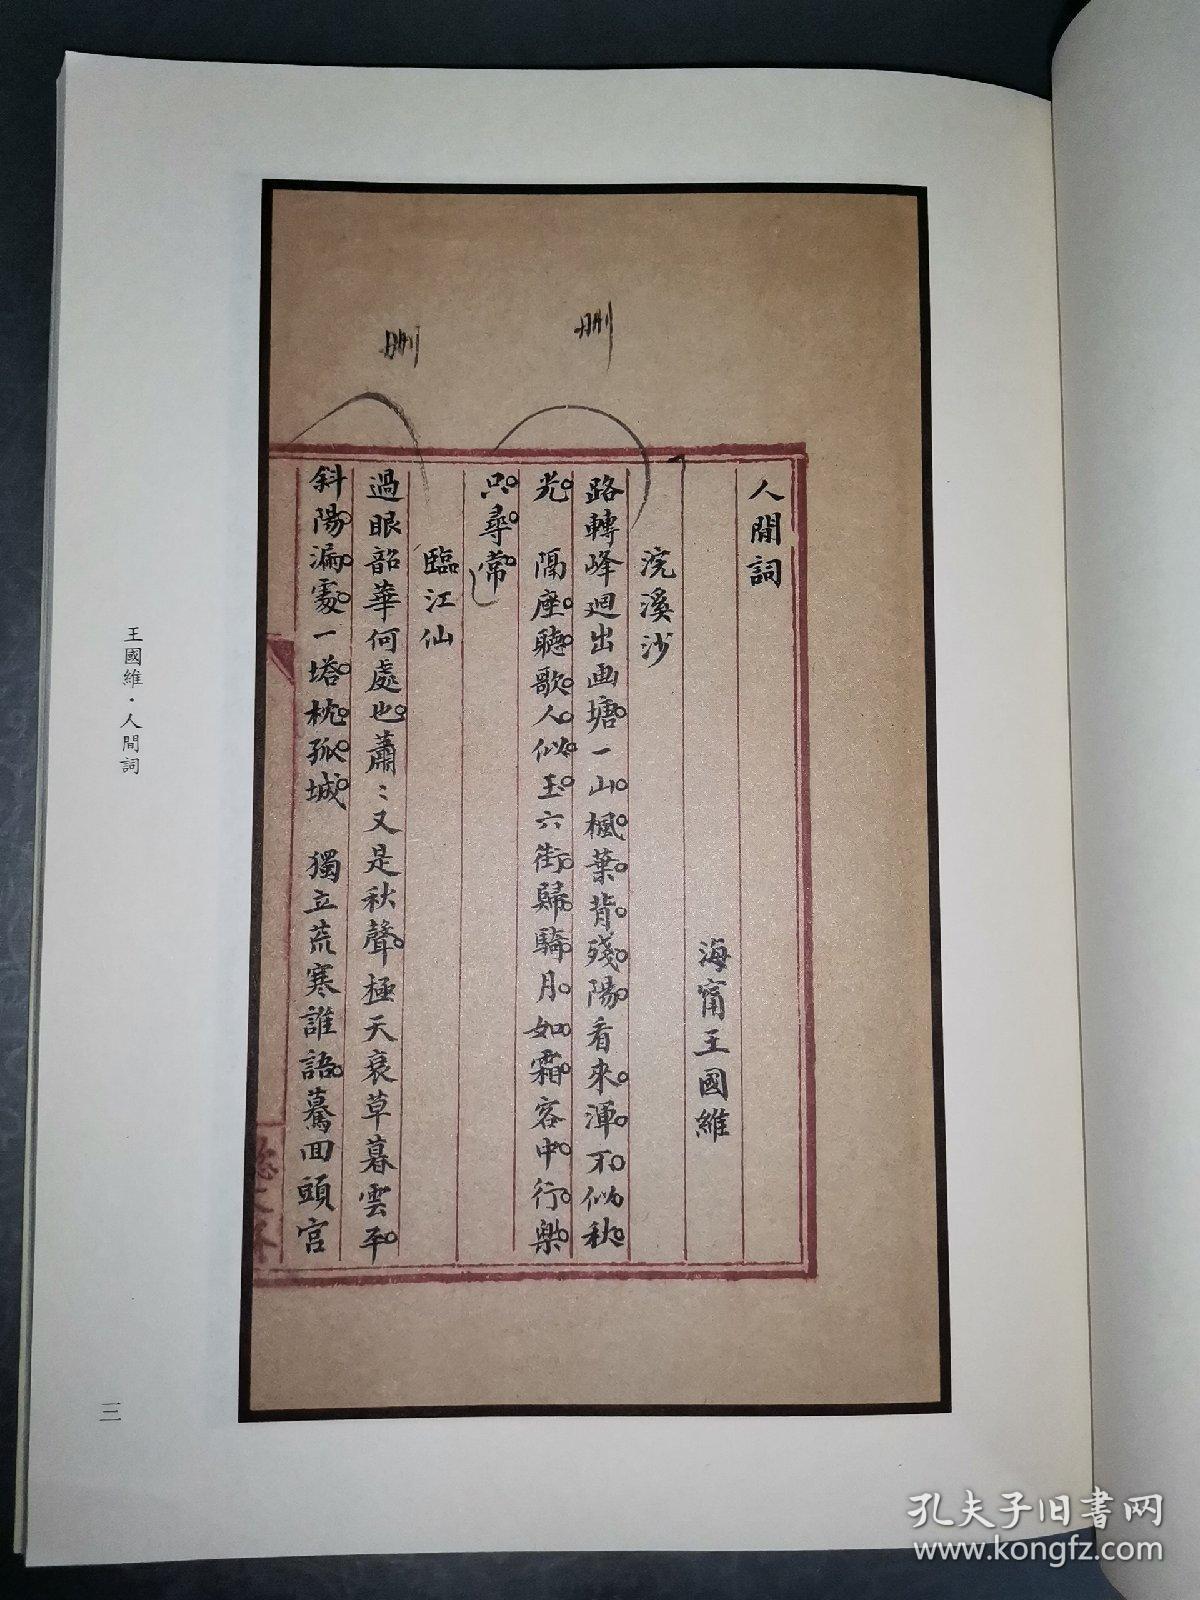 删
删
人間詞
海甯王國維
浣溪沙
路轉峰廻出畫塘一山楓葉背殘陽看來渾不似秋
光　隔座聽歌人似玉六街歸騎月如霜客中行樂
只尋常
臨江仙
過眼韶華何處也蕭〻又是秋聲極天衰草暮雲平
斜陽漏處一塔枕孤城　獨立荒寒誰語驀回頭宫
王國維・人間詞
三
孔夫子旧书网
www.kongfz.com